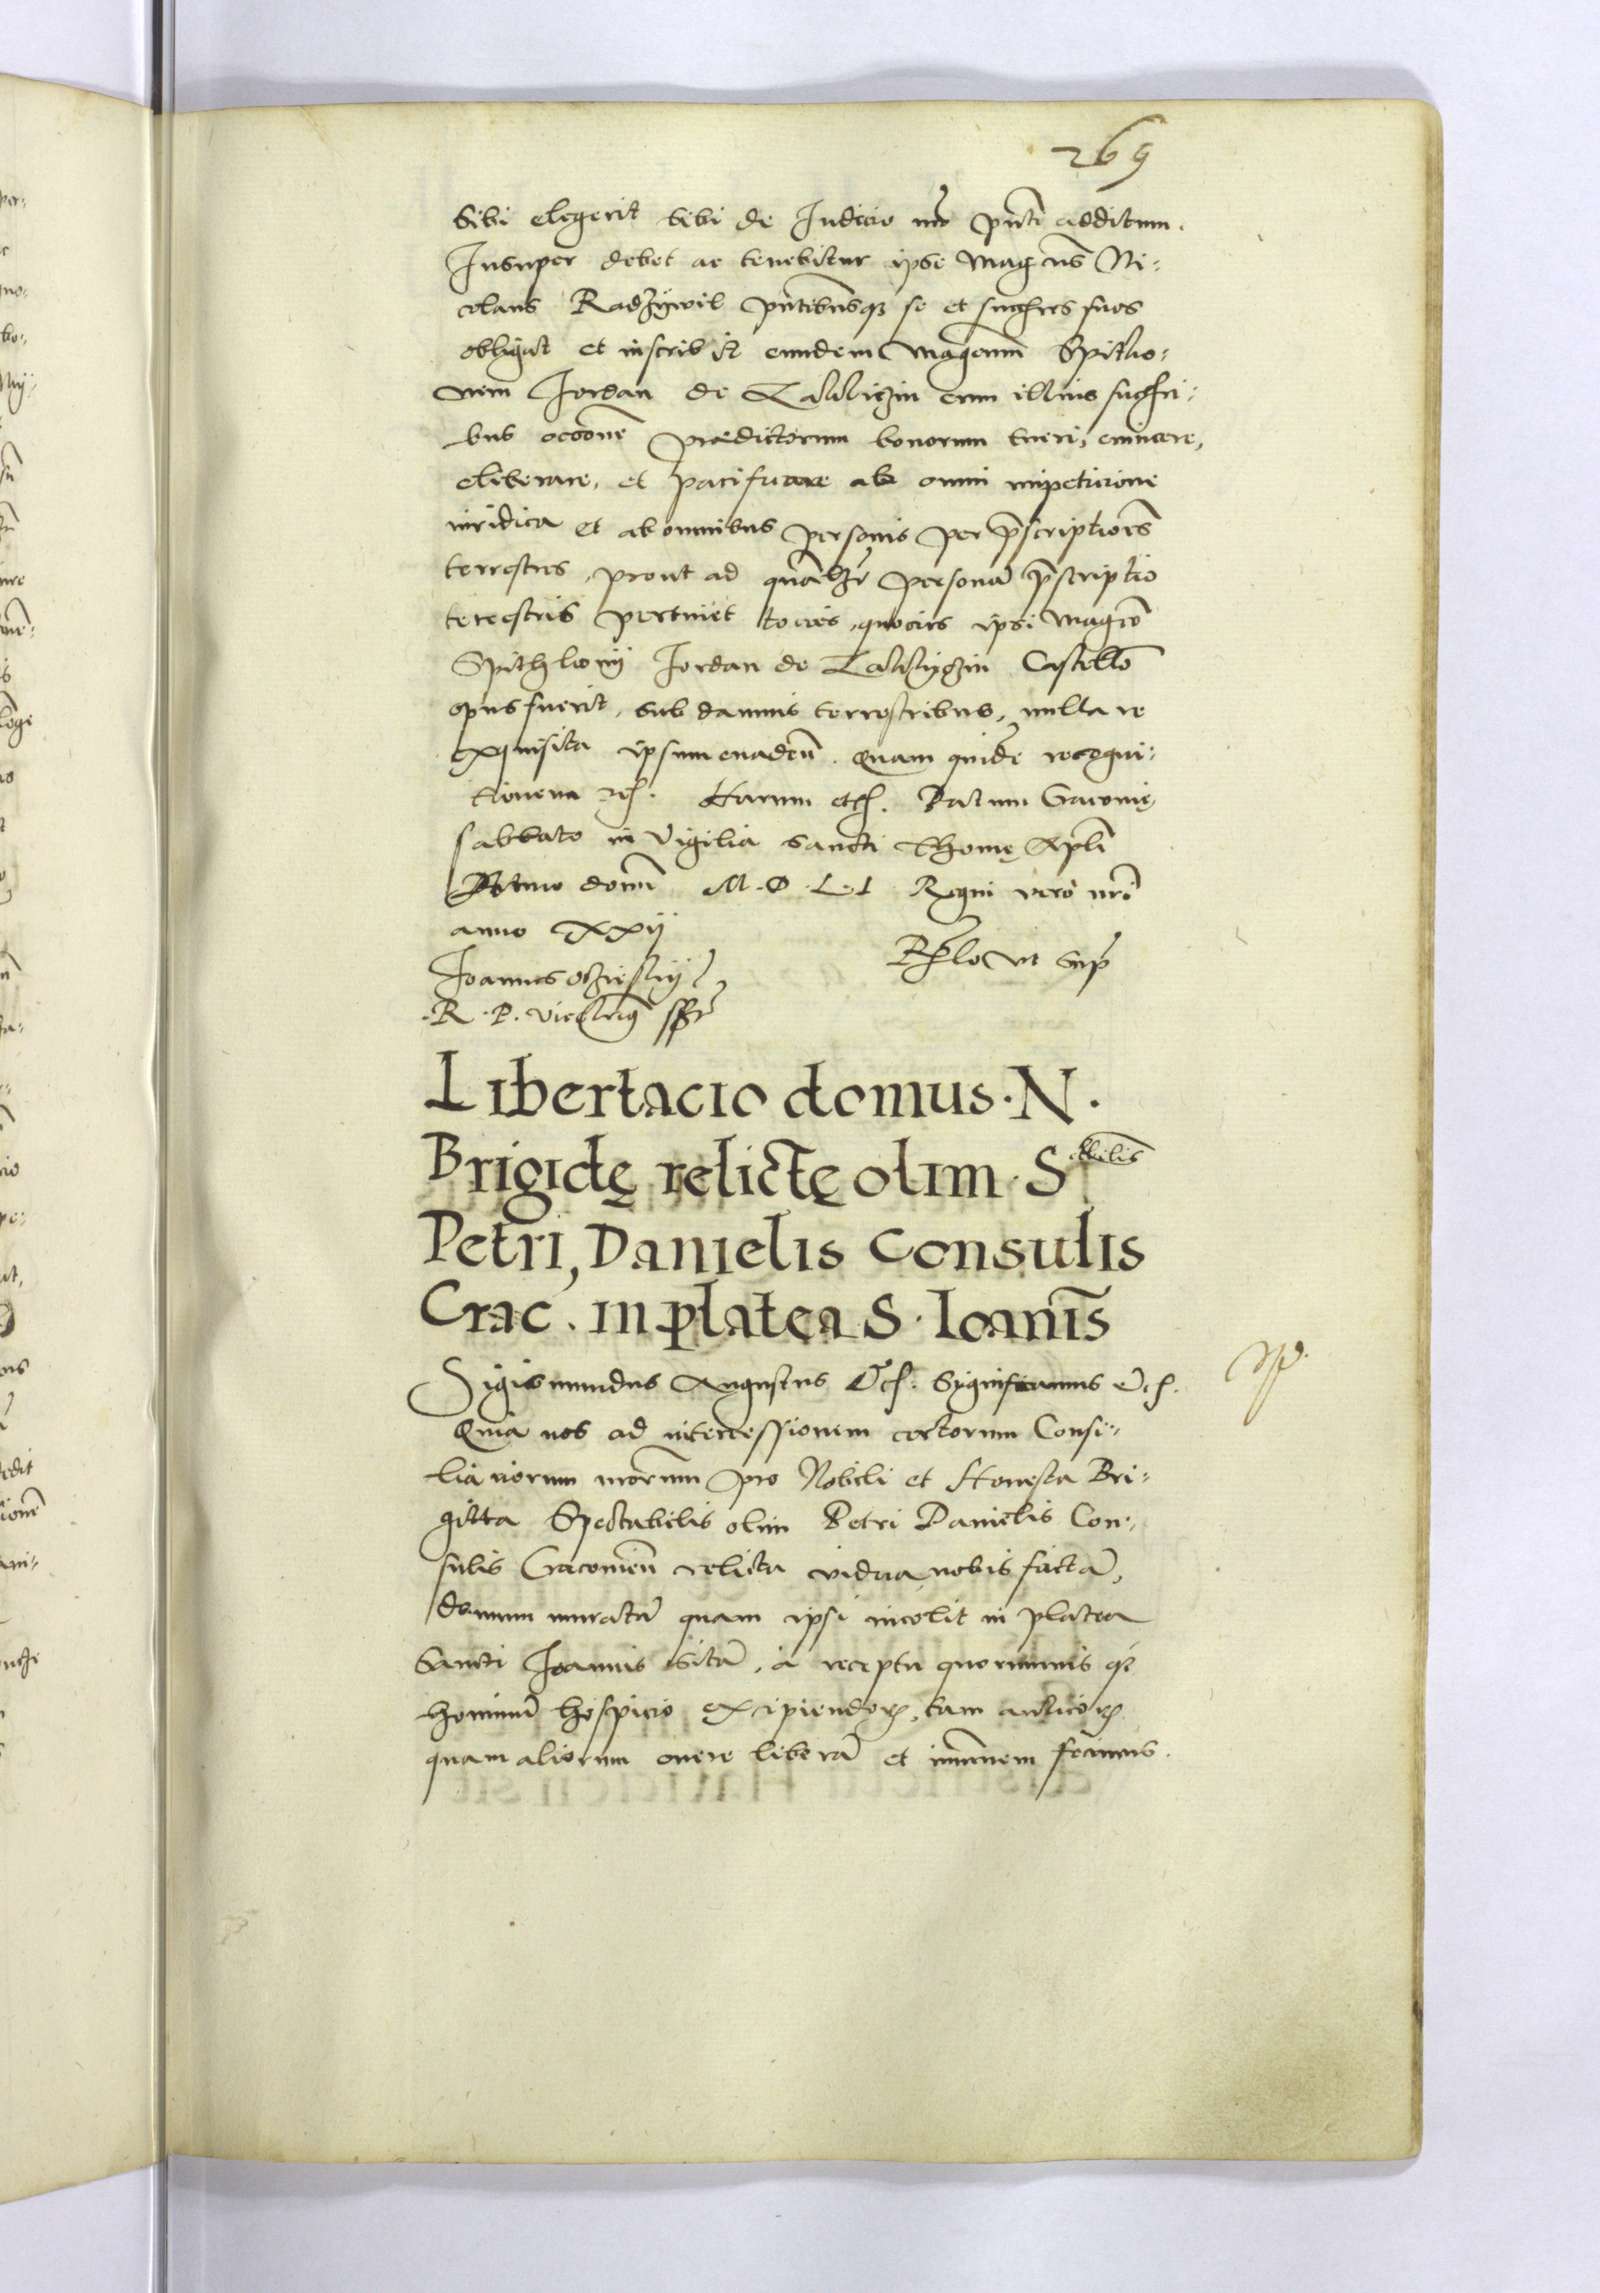 269
sibi elegerit sibi de Iudicio nro pnti additum.
Insuper debet ac tenebitur ipse Mag cus Ni-
colaus Radzywil pntibusq se et succhres suos
obligat et inscrib it eundem Magcum Spitho-
nem Iordan de Zakliczin cum illius succhri-
bus occone praedictorum bonorum tueri, evincere,
eliberare, et pacificare ab omni impeticione
iuridica et ab omnibus personis per pscriptiones
terrestres, prout ad quamlzt persona pscriptio
terrestris pertinet tocies, quocies ipsi Magco
Spithkonij Iordan de Zaklyczin Castello
opus fuerit, sub damnis terrestribus, nulla re
exquisita ipsum evaden. Quam quide recogni-
tionem rc. Harum etc. Datum Cracovię
sabbato in vigilia Sancti Thomę Apli
Anno domi M.D.L.I Regni vero nri
anno XXij
Ioannes Oczieskij
Relo ut supr
.R.P. vicecancrius sst
Libertacio domus. N.
Brigidę relictę olim. S ctbilis
Petri, Danielis Consulis
Crac. in platea S. Ioanis
Sigismundus Augustus Etc. Significamus Etc.
Quia nos ad intercessionem certorum Consi-
liariorum nrorum pro Nobili et Honesta Bri-
gitta Spectabilis olim Petri Danielis Con-
sulis Cracovien relicta vidua nobis facta,
domum murata quam ipsa incolit in platea
Sancti Ioannis sita, a receptu quorumvis q
hominu hospicio excipiendor, tam aulicor
quam aliorum onere libera et immunem fecimus.